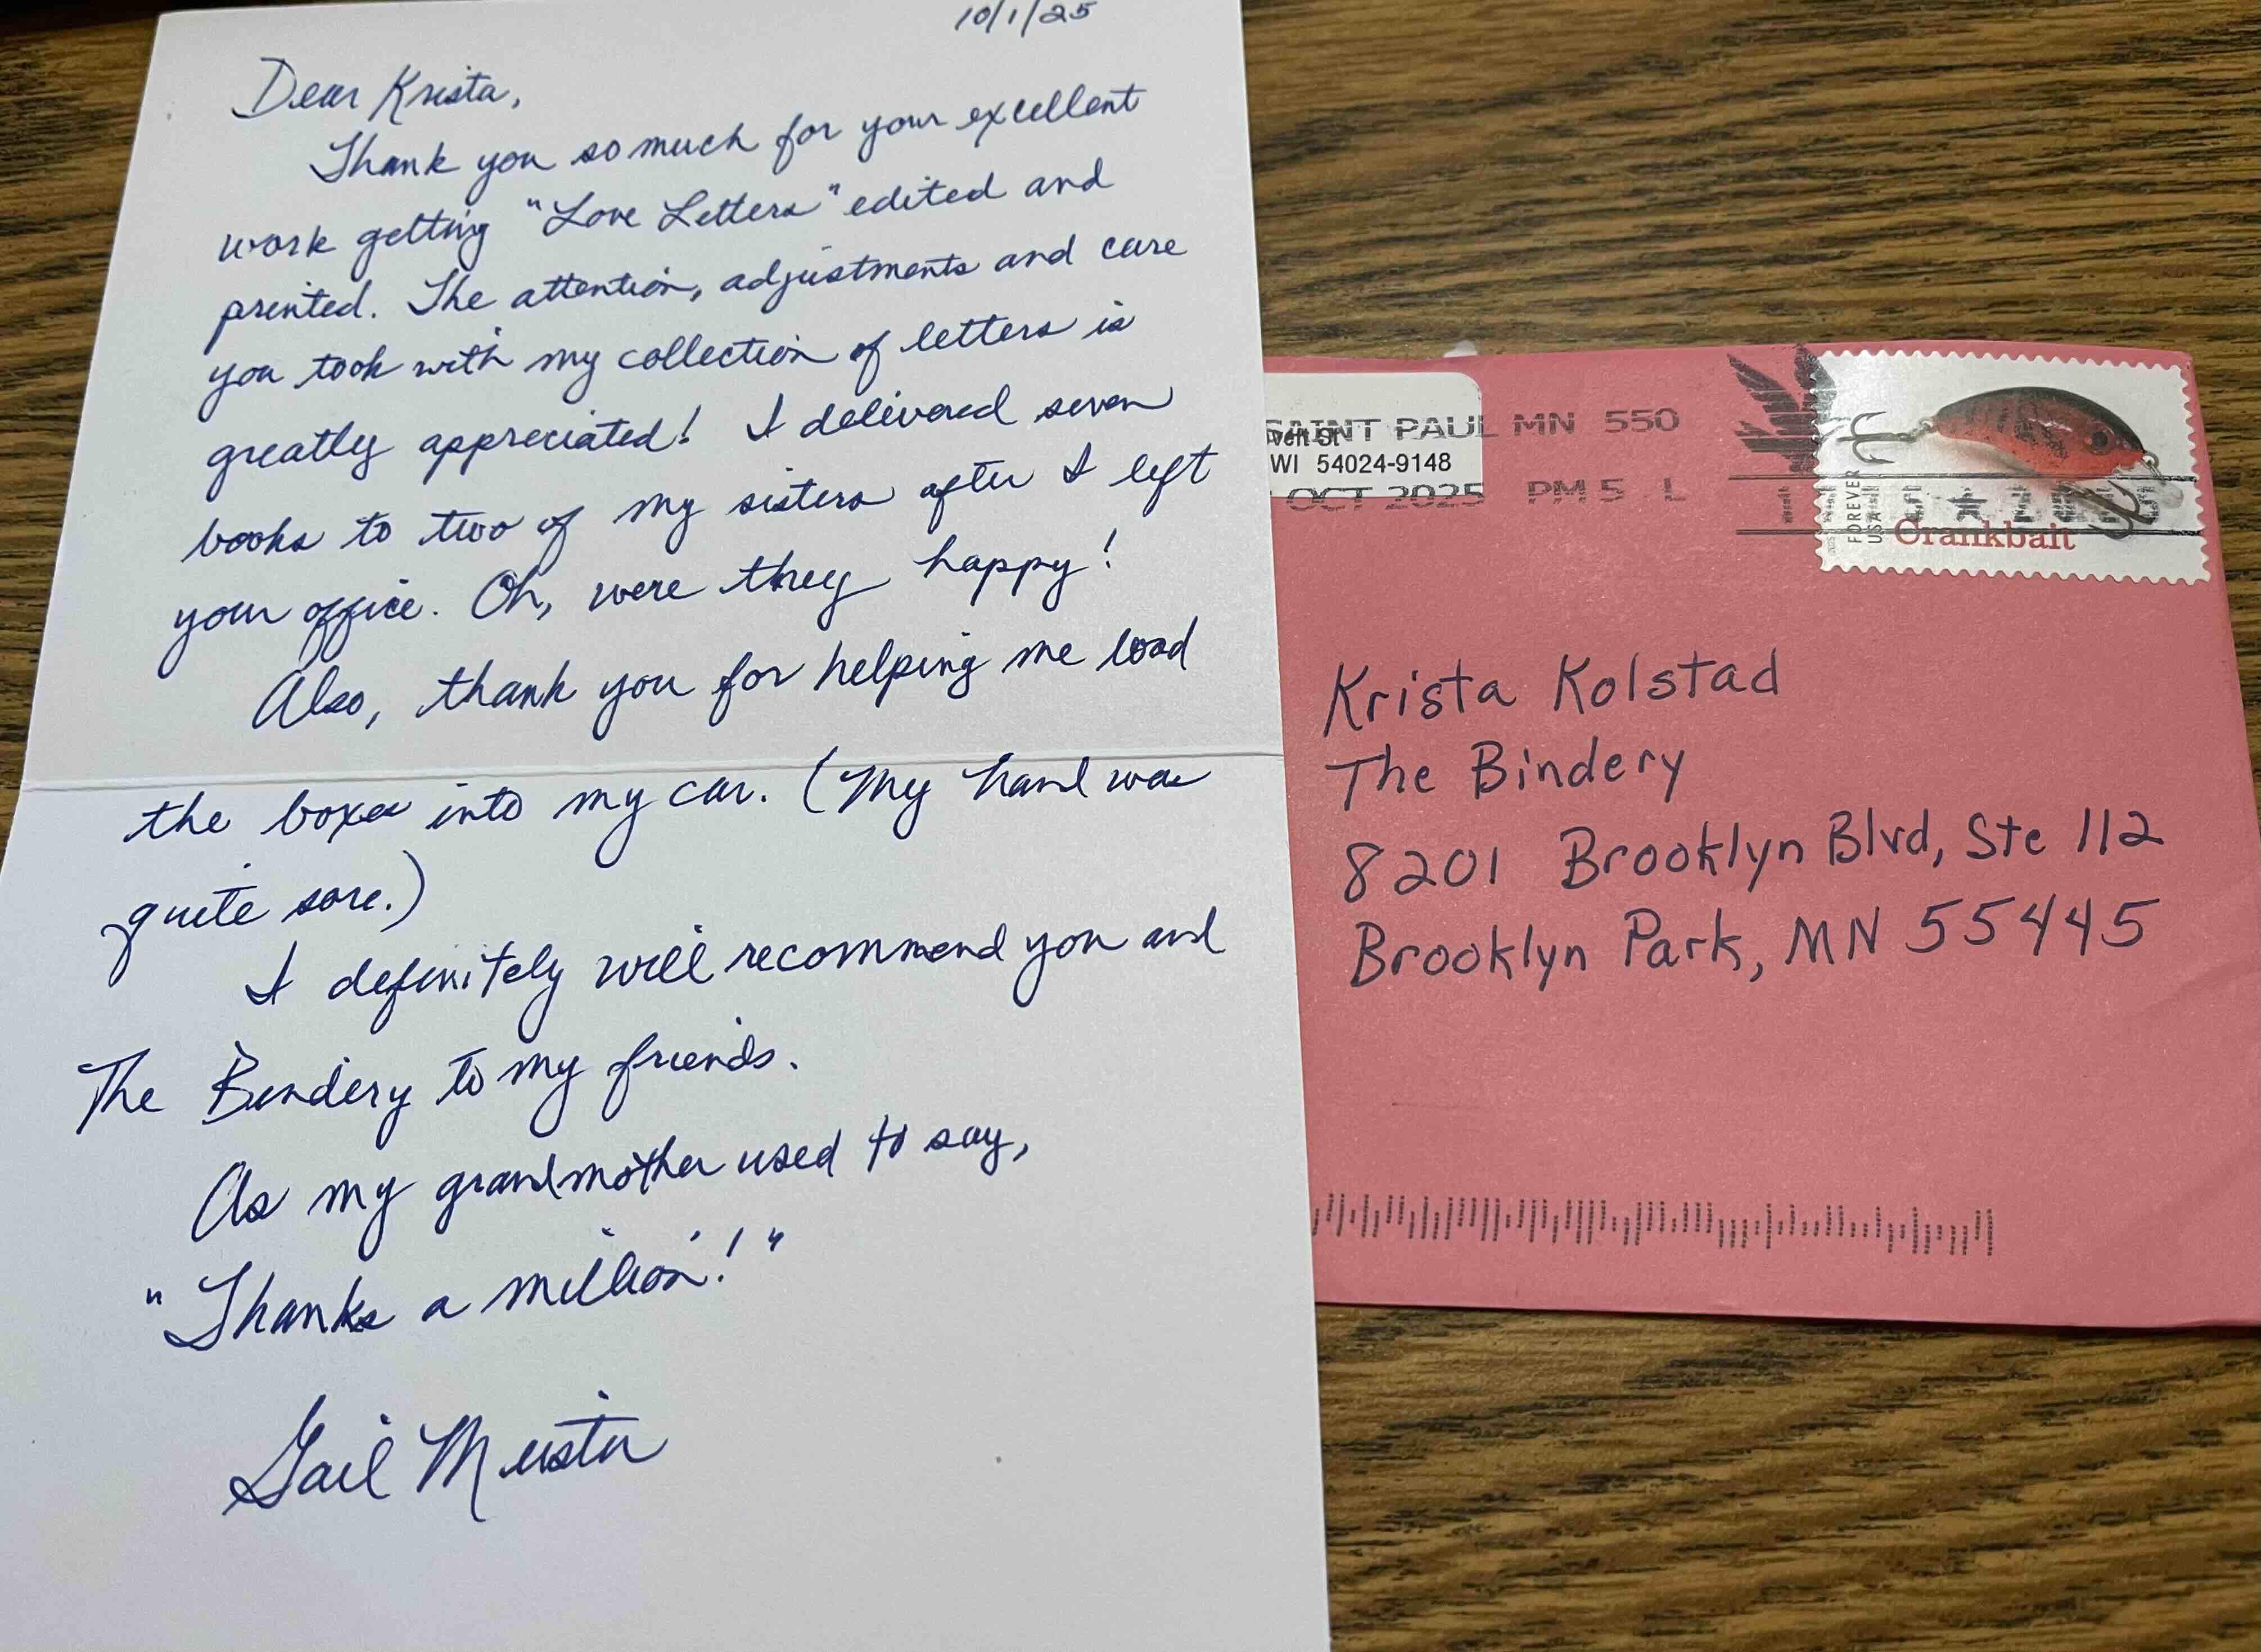 10/1/25
Dear Krista,
Thank you so much for your excellent
work getting "Love Letters" edited and
printed. The attention, adjustments and care
you took with my collection of letters is
greatly appreciated! I delivered seven
books to two of my sisters after I left
your office. Oh, were they happy!
Also, thank you for helping me load
the boxes into my car. (My hand was
quite sore.)
I definitely will recommend you and
The Bindery to my friends.
As my grandmother used to say,
"Thanks a million!"
Gail Meister
SAINT PAUL MN 550
WI 54024-9148
OCT 2025 PM 5 L
FOREVER
USA
Crankbait
Krista Kolstad
The Bindery
8201 Brooklyn Blvd, Ste 112
Brooklyn Park, MN 55445